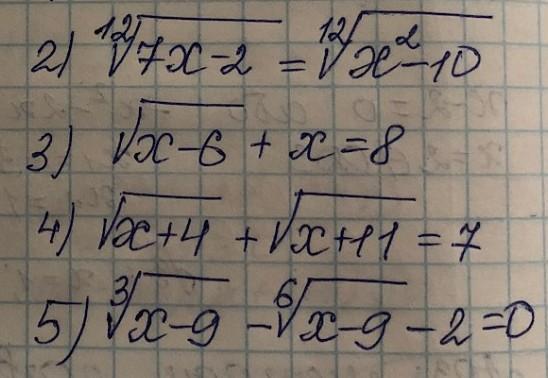 2) \sqrt[12]{7x-2} = \sqrt[12]{x^2-10}
3) \sqrt{x-6} + x = 8
4) \sqrt{x+4} + \sqrt{x+11} = 7
5) \sqrt[3]{x-9} - \sqrt[6]{x-9} - 2 = 0